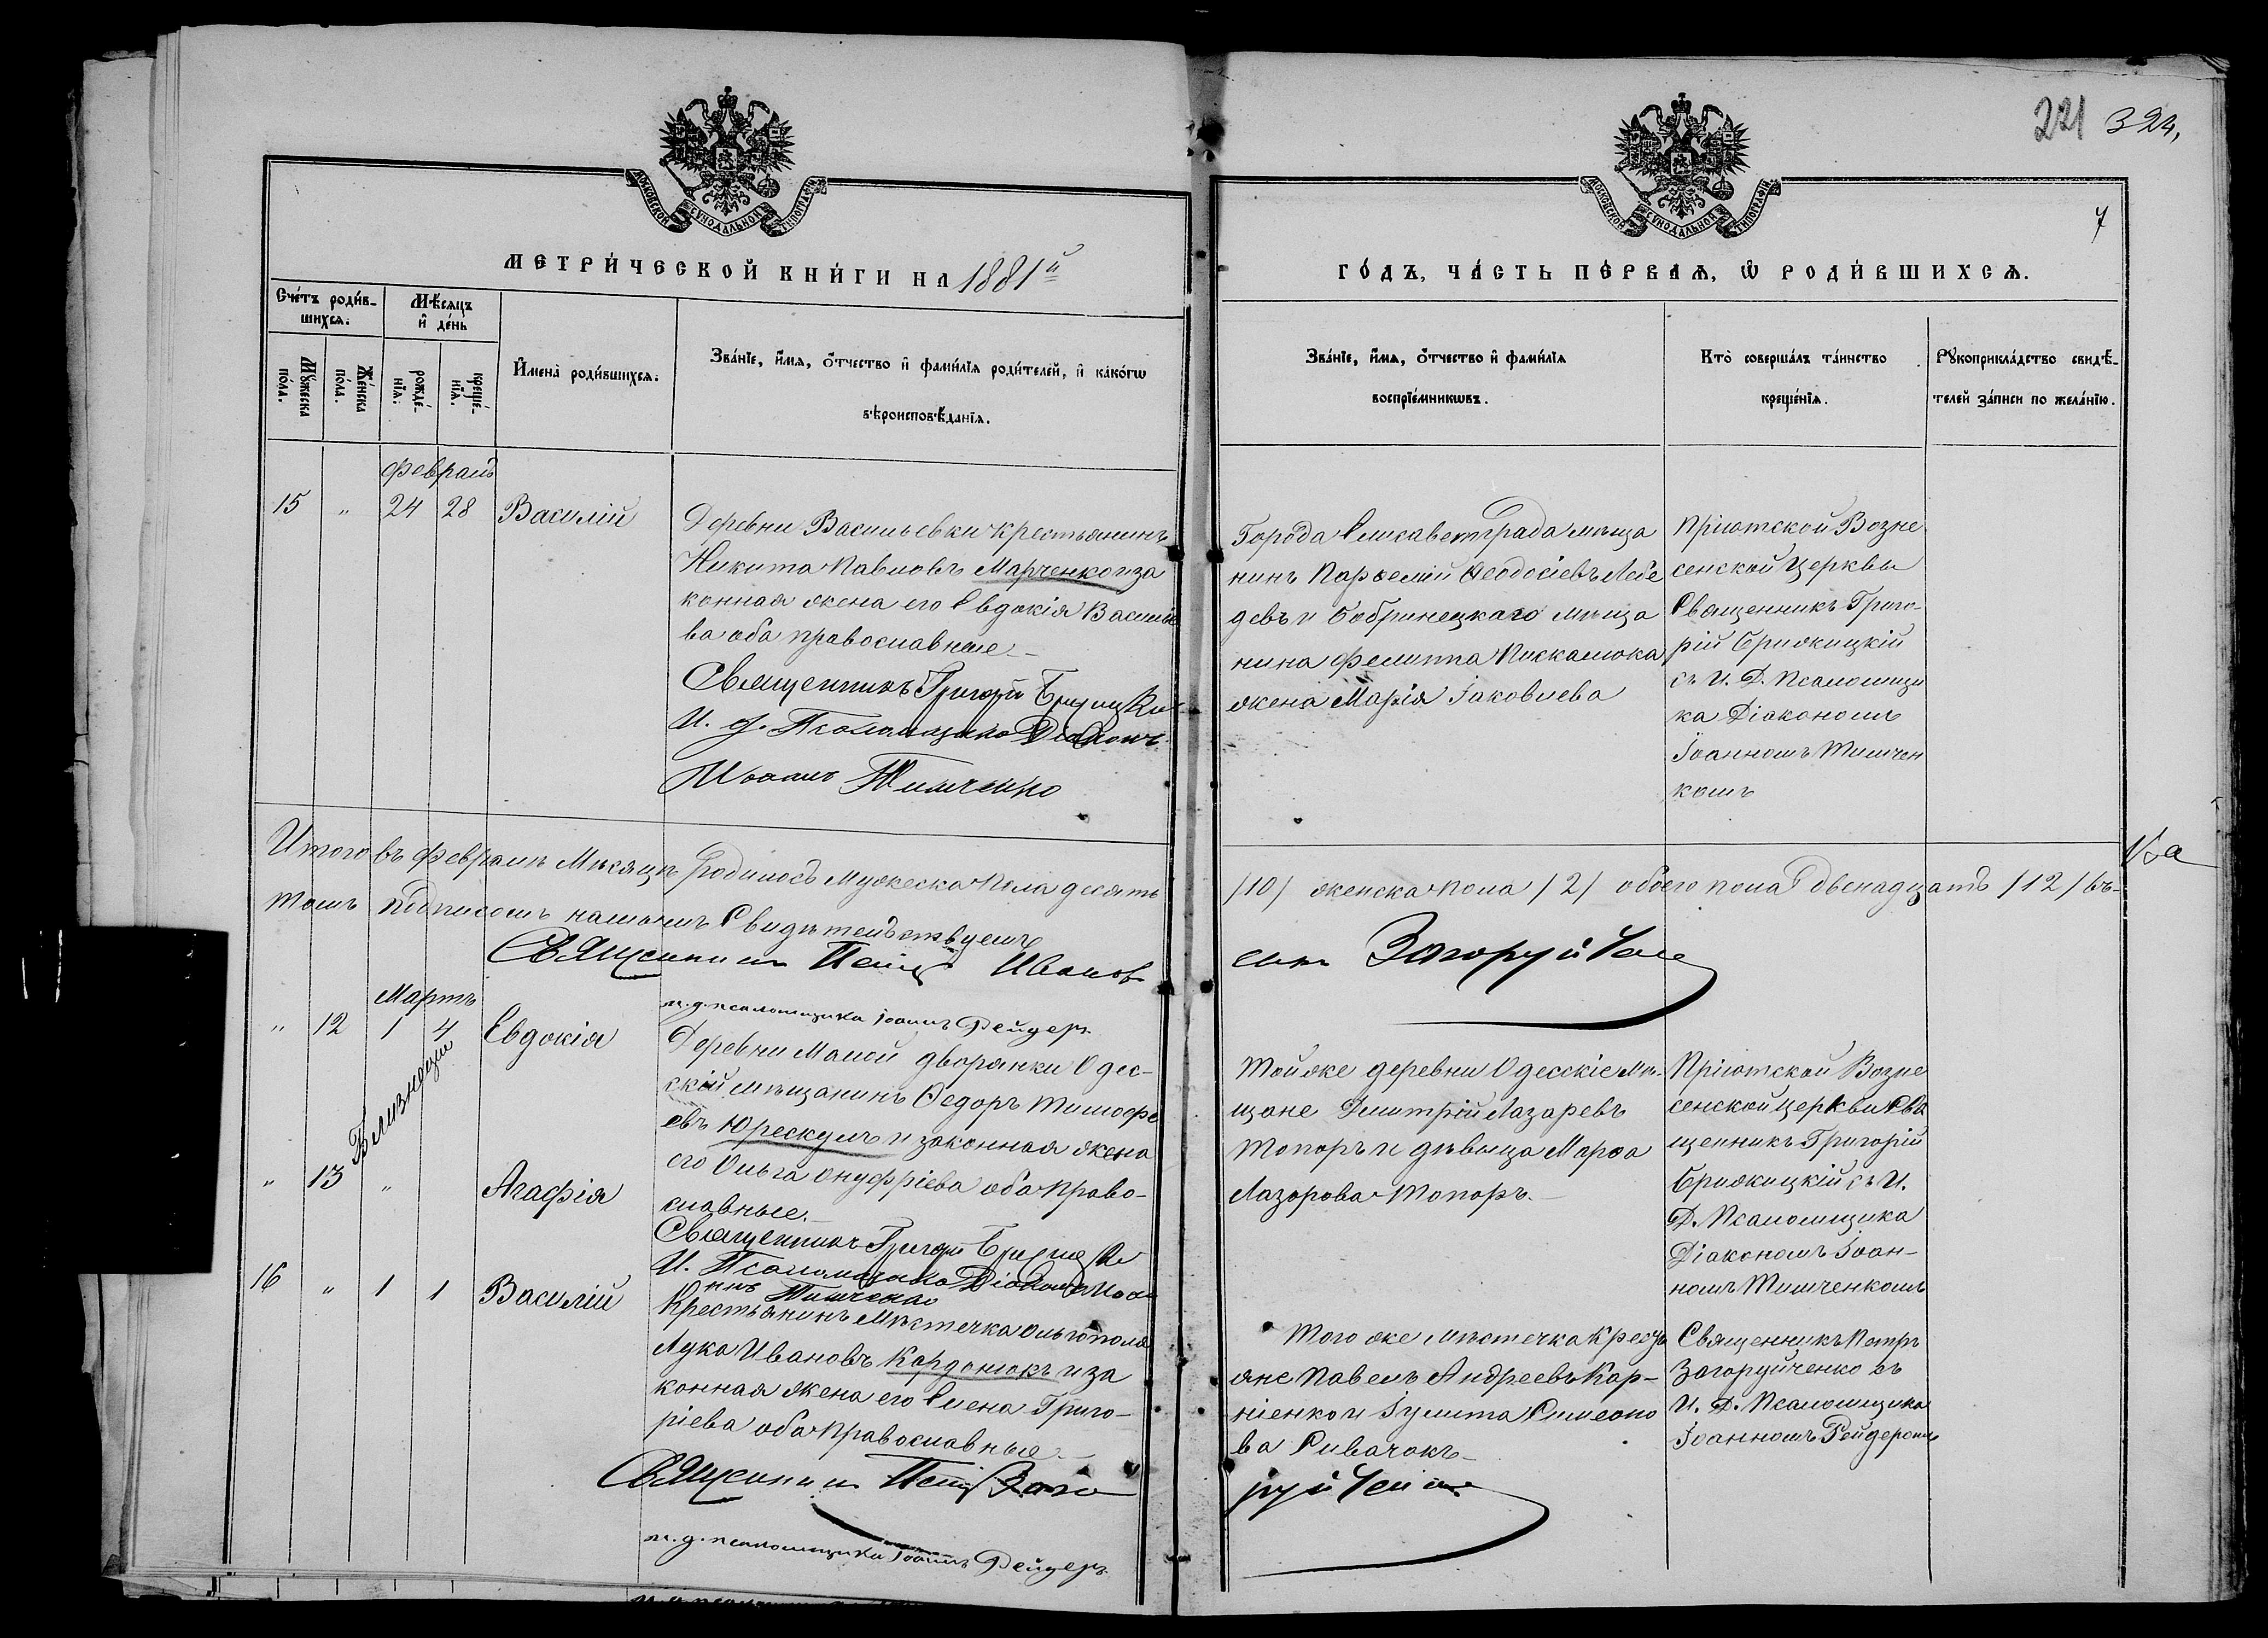 221 324,
7
МОСКОВСКОЙ СУНОДАЛЬНОЙ ТИПОГРАФІИ
МОСКОВСКОЙ СУНОДАЛЬНОЙ ТИПОГРАФІИ
МЕТРИ́ЧЕСКОЙ КНИ́ГИ НА 1881й
ГО́ДЪ, ЧА́СТЬ ПЕ́РВАѦ, Ѿ РОДИ́ВШИХСѦ.
Сче́тъ роди́в-
шихсѧ.
Мѣ́сѧцъ
и҆ де́нь
Мꙋ́жеска
по́ла.
Же́нска
по́ла.
рожде́-
нїѧ.
креще́-
нїѧ.
И҆мена̀ роди́вшихсѧ.
Зва́нїе, и҆́мѧ, ѻ҆́тчество и҆ фами́лїѧ роди́телей, и҆ како́гѡ
вѣроисповѣ́данїѧ.
Зва́нїе, и҆́мѧ, ѻ҆́тчество и҆ фами́лїѧ
воспрїе́мникѡвъ.
Кто̀ соверша́лъ та́инство
креще́нїѧ.
Рꙋкоприкла́дство свидѣ́-
телей за́писи по жела́нїю.
Февраль
15 " 24 28 Василій
Деревни Васильевки крестьянинъ
Никита Павловъ Марченко и за
конная жена его Евдокія Василіе
ва оба православные
Священникъ Григорій Брижицкій
И. д. Псаломщика Діаконъ
Иоаннъ Тимченко
Города Елисаветграда мѣща
нинъ Парѳеній Ѳеодосіевъ Лебе
девъ и Бобринецкаго мѣща
нина Филиппа Пискалюка
жена Марія Іаковлева
Пріютской Возне
сенской Церквы
Священникъ Григо-
рій Брижицкій
съ И. Д. Псаломщи
ка Діакономъ
Іоанномъ Тимчен
комъ
Итого въ Февралѣ Мѣсяцѣ родилось Мужеска Пола десять /10/ женска пола /2/ обоего пола двенадцать /12/ въ
томъ подписомъ нашимъ Свидѣтельствуемъ
Священникъ Петръ Иванов
Загоруйченко
и. д. псаломщика Іоаннъ Рейдеръ
Мартъ
" 12 1 4 Евдокія
Близнецы
" 13 " Агафія
Деревни Малой дворянки Одес-
скій мѣщанинъ Ѳедоръ Тимофе
евъ Юрескулъ и законная жена
его Ольга Онуфріева оба право-
славные.
Священникъ Григорій Брижицкій
И. Псаломщика Діаконъ Иоа
ннъ Тимченко
Той же деревни Одесскіе Мѣ-
щане Димитрій Лазаревъ
Топоръ и дѣвица Марѳа
Лазорова Топоръ.
Пріютской Возне
сенской Церкви Свя
щенникъ Григорій
Брижицкій съ И.
Д. Псаломщика
Діакономъ Іоан-
номъ Тимченкомъ
16 " 1 1 Василій
Крестьянинъ Мѣстечка Ольгополя
Лука Ивановъ Кардонюкъ и за
конная жена его Елена Григо-
ріева оба православные
Священникъ Петръ Заго
руйченко
и. д. псаломщика Іоаннъ Рейдеръ
Того же мѣстечка Кресть
яне Павелъ Андреевъ Кор-
ніенко и Іулита Симеоно
ва Сивачокъ
Священникъ Петръ
Загоруйченко съ
И. Д. Псаломщика
Іоанномъ Рейдеромъ